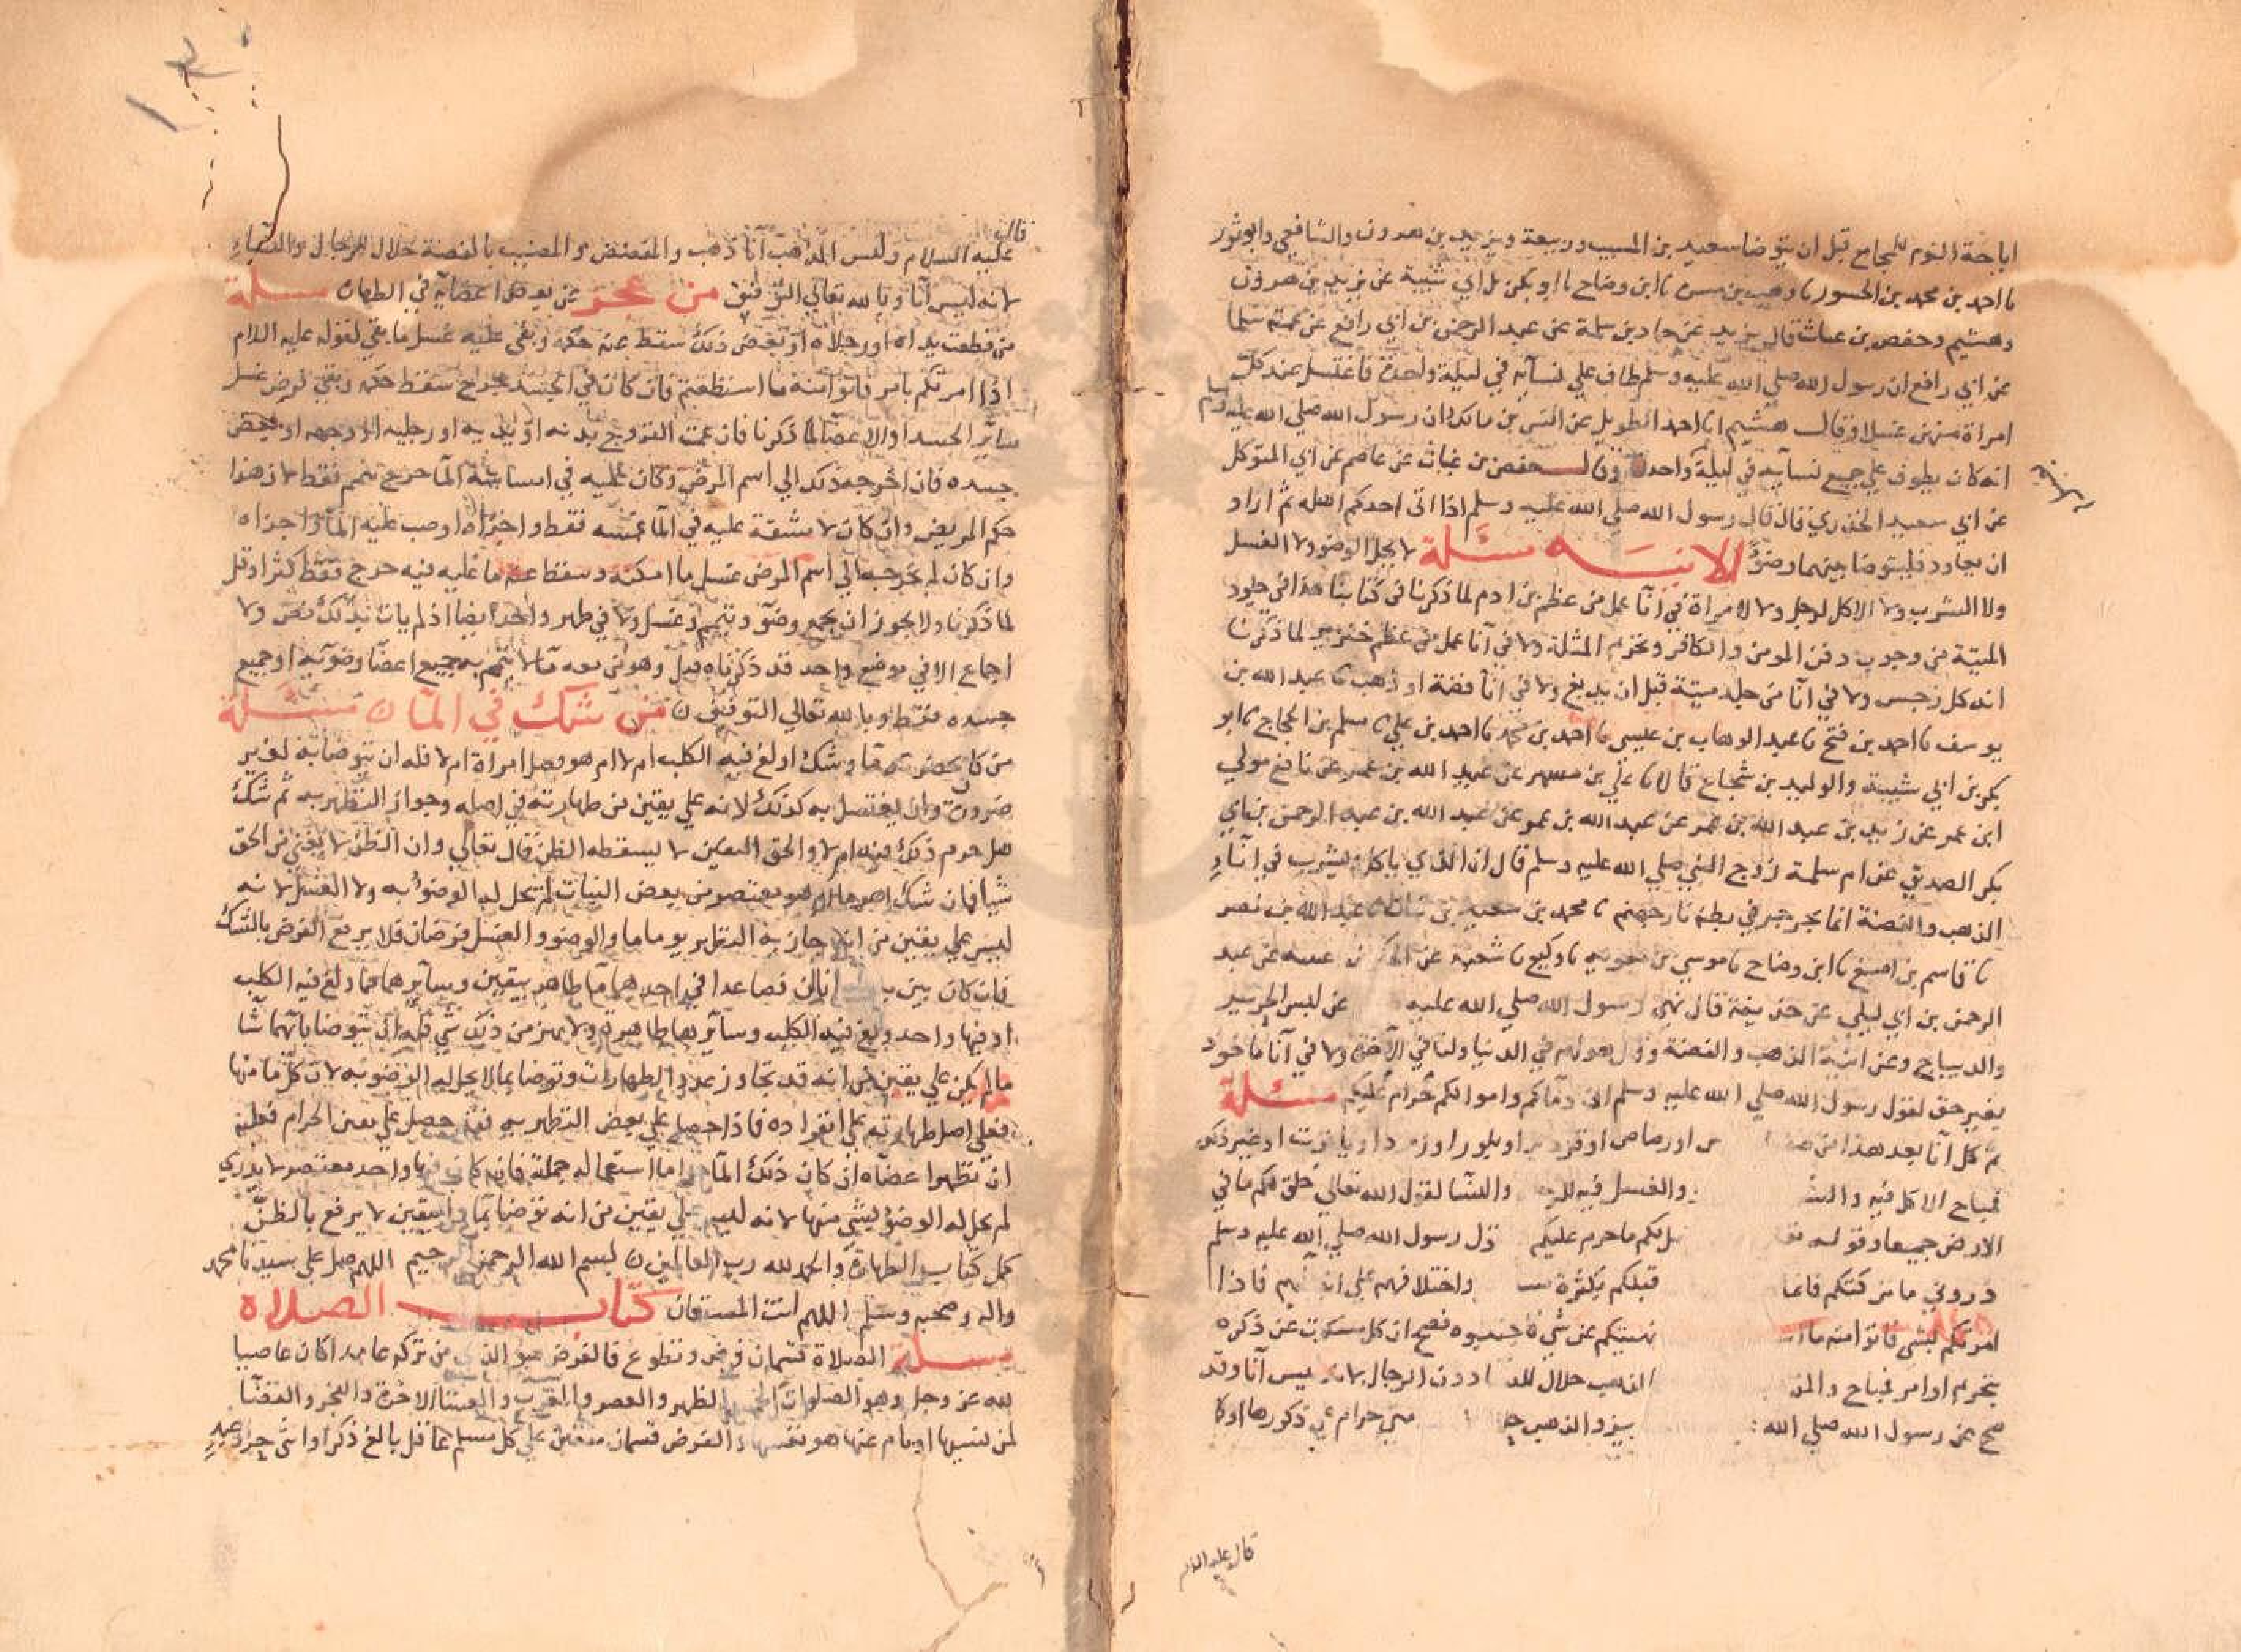 اباحة النوم للمجامع قبل ان يتوضا سعيد بن المسيب وربيعة ويزيد بن هرون والشافعي وابو ثور
نا احمد بن محمد بن الجسور نا وهب بن مسرة نا ابن وضاح نا ابو بكر بن ابي شيبة عن يزيد بن هرون
وهشيم وحفص بن غياث قال يزيد عن حماد بن سلمة عن عبد الرحمن بن ابي رافع عن عمته سلما
عن ابي رافع ان رسول الله صلي الله عليه وسلم طاف علي نسآيه في ليلة واحدة فاغتسل عند كل
امراة منهن غسلا وقال هشيم انا احمد الطويل عن انس بن مالك ان رسول الله صلي الله عليه وسلم
انه كان يطوف علي جميع نسآيه في ليلة واحدة وقال حفص بن غياث عن عاصم عن ابي المتوكل
عن ابي سعيد الخدري قال قال رسول الله صلي الله عليه وسلم اذا اتي احدكم اهله ثم اراد
ان يعاود فليتوضا بينهما وضوًا الانيه مسئلة لا يحل الوضو ولا الغسل
ولا الشرب ولا الاكل لرجل ولا لامراة في انآ عمل من عظم بن ادم لما ذكرنا في كتابنا هذا في جلود
الميتة من وجوب دفن المومن والكافر وتحريم المثلة ولا في انآ عمل من عظم خنزير لما ذكرنا
انه كل رجس ولا في انآ من جلد ميتة قبل ان يدبغ ولا في انآ فضة او ذهب نا عبد الله بن
يوسف نا احمد بن فتح نا عبد الوهاب بن عيسي نا احمد بن محمد نا احمد بن علي نا مسلم بن الحجاج نا ابو
بكر بن ابي شيبة والوليد بن شجاع قالا نا علي بن مسهر عن عبيد الله بن عمر عن نافع مولي
ابن عمر عن زيد بن عبد الله بن عمر عن عبد الله بن عبد الرحمن بن ابي
بكر الصديق عن ام سلمة زوج النبي صلي الله عليه وسلم قال ان الذي ياكل ويشرب في انآء
الذهب والفضة انما يجرجر في بطنه نار جهنم نا محمد بن سعيد بن نبات نا عبد الله بن نصر
نا قاسم بن اصبغ نا ابن وضاح نا موسي بن معويه نا وكيع نا شعبة عن الحكم بن عتيبه عن عبد
الرحمن بن ابي ليلي عن حذيفة قال نهي رسول الله صلي الله عليه عن لبس الحرير
والديباج وعن انية الذهب والفضة وقال هو لهم في الدنيا ولنا في الآخرة ولا في انآ ماخوذ
بغير حق لقول رسول الله صلي الله عليه وسلم ان دمآكم واموالكم حرام عليكم مسئلة
ثم كل انآ بعد هذا من او رصاص او بلور او او ياقوت او غير ذلك
فمباح الاكل فيه والغسل فيه والنسآ لقول الله تعالي خلق لكم ما في
الارض جميعا وقوله لكم ما حرم عليكم رسول الله صلي الله عليه وسلم
ذروني ما تركتكم فانما قبلكم بكثرة واختلافهم علي فاذا
امرتكم بشي فاتوا منه ما نهيتكم عن شي فاجتنبوه فصح ان كل مسكوت عن ذكره
بتحريم او امر فمباح الذهب حلال دون الرجال لانه ليس انآ وقد
صح عن رسول الله صلي الله والذهب حرام علي ذكورها اوكا
قال عليه السلام
قال
عليه السلام وليس المذهب انآ ذهب والمفضض والمضبب بالفضة حلال للرجال والنسآء
لانه ليس انآ وبالله تعالي التوفيق من عجز عن بعض اعضايه في الطهارة مسئلة
من قطعت يداه او رجلاه او بعض ذلك سقط عنه حكمه وبقي عليه غسل ما بقي لقوله عليه السلام
اذا امرتكم بامر فاتوا منه ما استطعتم فان كان في الجسد جرح سقط حكمه وبقي فرض غسل
سآير الجسد او الاعضآ لما ذكرنا فان عمت القروح بدنه او يديه او رجليه او وجهه او بعض
جسده فان اخرجه ذلك الي اسم المرض وكان عليه في امساسه المآ حرج تيمم فقط لان هذا
حكم المريض وان كان لا مشقة عليه في المآ غمسه فقط واجزاه او صب عليه المآ واجزاه
وان كان لم يخرجه الي اسم المرض غسل ما امكنه وسقط عنه ما عليه فيه حرج فقط كثر او قل
لما ذكرنا ولا يجوز ان يجمع وضو وتيمم وغسل ولا في طهر واحد ايضا اذ لم يات بذلك نص ولا
اجماع الا في موضع واحد قد ذكرناه قبل وهو من معه مآ لا يتم به جميع اعضا وضوئه او جميع
جسده فقط وبالله تعالي التوفيق من شك في المآ مسئلة
من كان بحضرته مآ وشك اولغ فيه الكلب ام لا ام هو فضل امراة ام لا فله ان يتوضا به لغير
ضرورة وان يغتسل به كذلك لانه علي يقين من طهارته في اصله وجواز التطهر به ثم شك
هل حرم ذلك فيه ام لا والحق اليقين لا يسقطه الظن قال تعالي وان الظن لا يغني من الحق
شيا فان شك اهو مآ ام هو معتصر من بعض النبات لم يحل له الوضو به ولا الغسل لانه
ليس علي يقين من انه جاز به التطهر يوما ما والوضو والغسل فرضان فلا يرفع الفرض بالشك
فان كان بين يديه انآان فصاعدا في احدهما مآ طاهر بيقين وسآيرها مما ولغ فيه الكلب
او فيها واحد ولغ فيه الكلب وسآيرها طاهرة ولا يميز من ذلك شي فله ان يتوضا بايهما شآ
ما لم يكن علي يقين من انه قد تجاوز عدد الطاهرات وتوضا بما لا يحل له الوضو به لان كل ما منها
فعلي اصل طهارته علي انفراده فاذا حصل علي بعض التطهر به فقد حصل علي يقين الحرام فعليه
ان تطهر اعضآه ان كان ذلك المآ حراما استعماله جملة فان كان فيها واحد معتصر لا يدري
لم يحل له الوضو بشي منها لانه ليس علي يقين من انه توضا بمآ واليقين لا يرفع بالظن
كمل كتاب الطهارة والحمد لله رب العالمين بسم الله الرحمن الرحيم اللهم صل علي سيدنا محمد
واله وصحبه وسلم اللهم انت المستعان كتاب الصلاة
مسئلة الصلاة قسمان فرض وتطوع فالفرض هو الذي من تركه عامدا كان عاصيا
لله عز وجل وهو الصلوات الخمس الظهر والعصر والمغرب والعشآ الاخرة والفجر والقضآ
لمن نسيها او نام عنها هو نفسها والفرض قسمان متعين علي كل مسلم عاقل بالغ ذكر او انثي حر او عبد